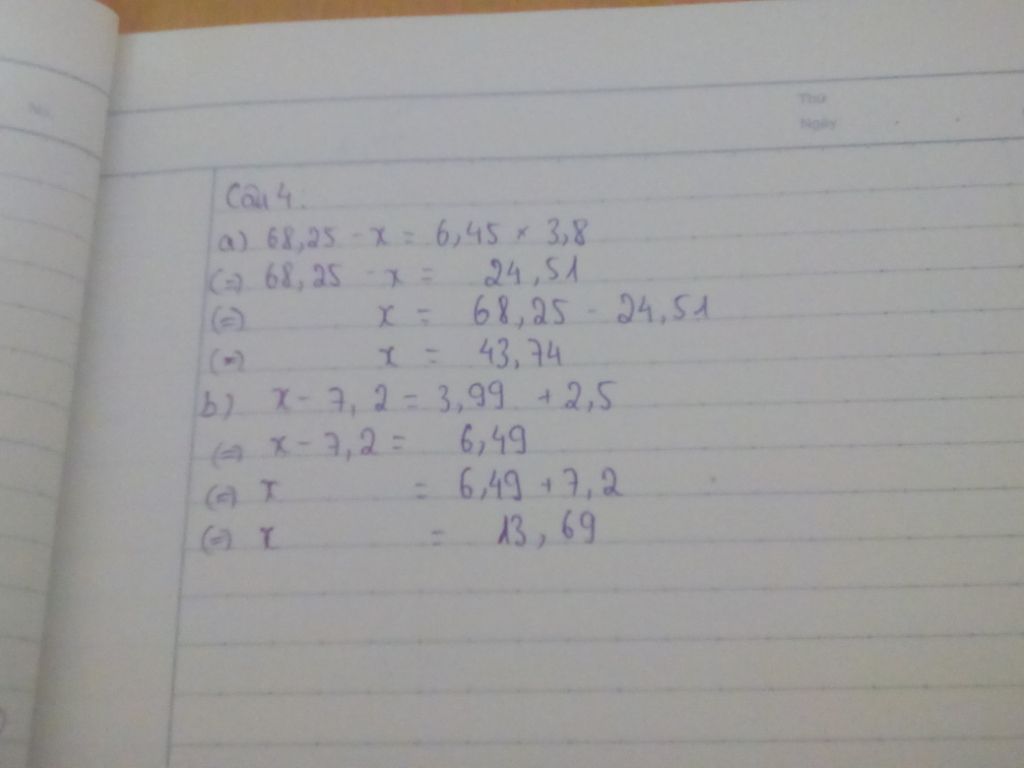 No.
Thứ
Ngày
Câu 4.
a) 68,25 - x = 6,45 × 3,8
(=) 68,25 - x = 24,51
(=) x = 68,25 - 24,51
(=) x = 43,74
b) x - 7,2 = 3,99 + 2,5
(=) x - 7,2 = 6,49
(=) x = 6,49 + 7,2
(=) x = 13,69